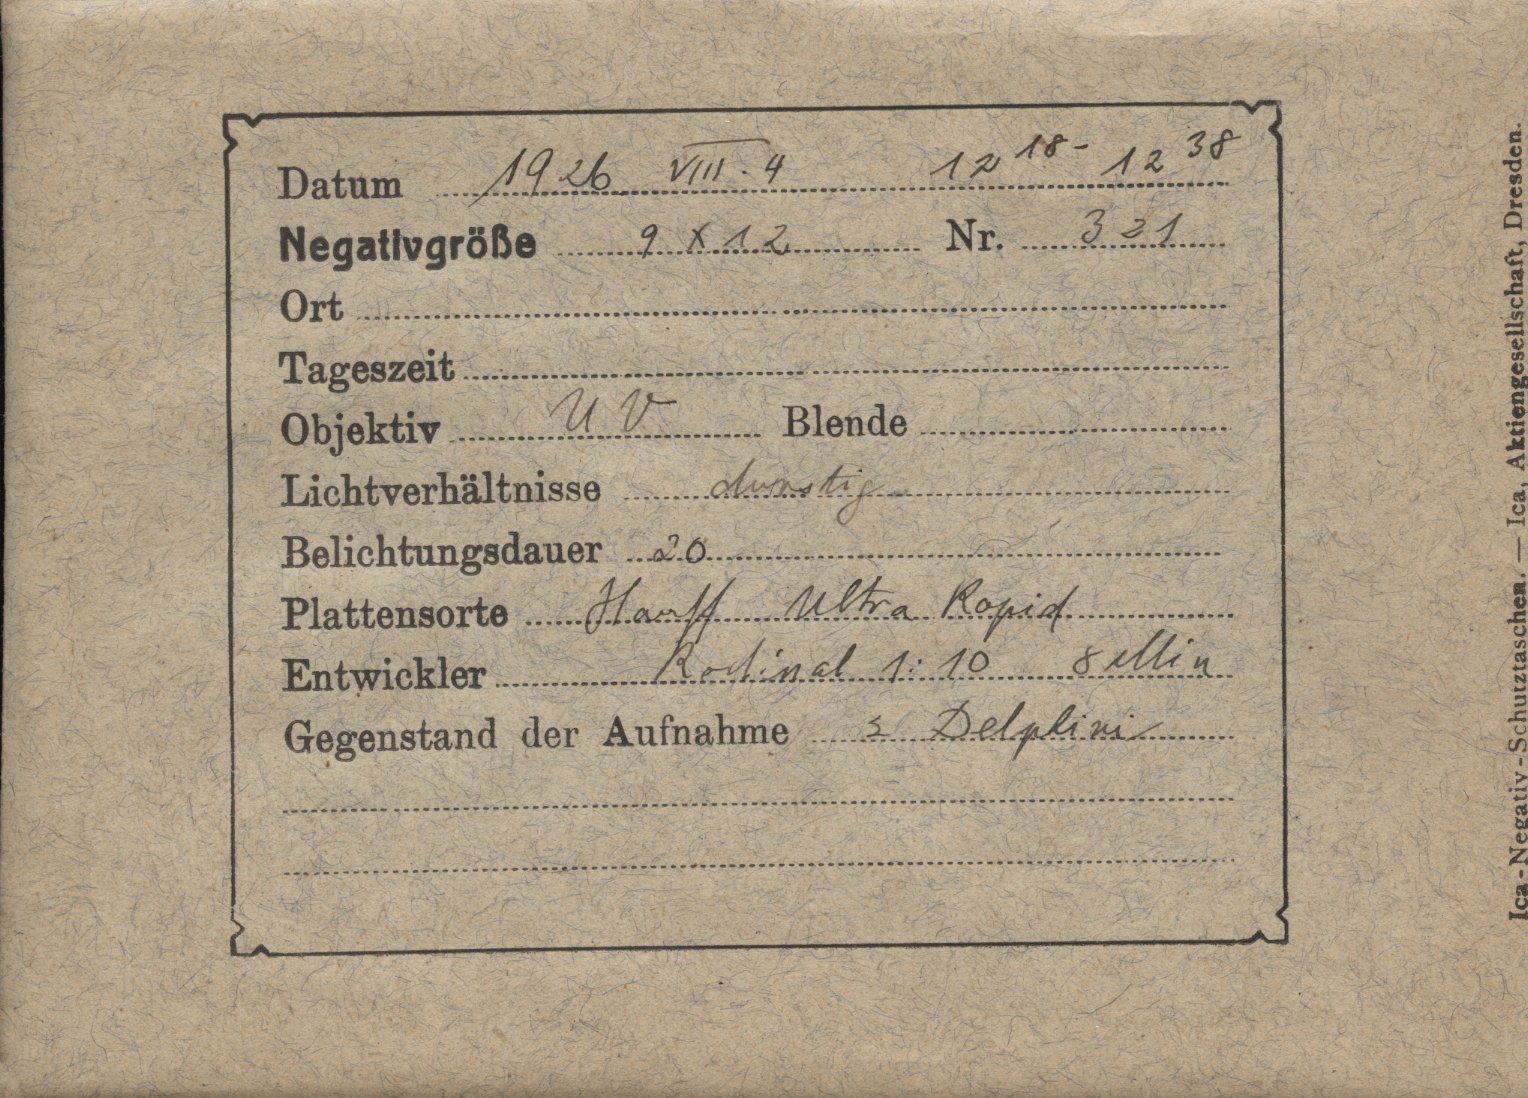 Datum 1926 VIII. 4 12 18 - 12 38
Negativgröße 9 x 12 Nr. 321
Ort
Tageszeit
Objektiv U V Blende
Lichtverhältnisse dunstig
Belichtungsdauer 20
Plattensorte Hauff Ultra Rapid
Entwickler Rodinal 1:10 8 Min
Gegenstand der Aufnahme Delphini
Ica-Negativ-Schutztaschen. — Ica, Aktiengesellschaft, Dresden.